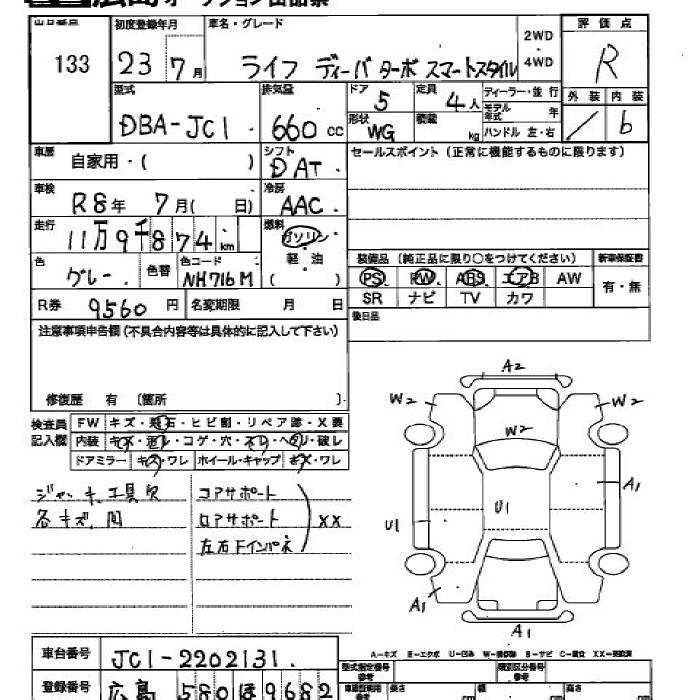 広島オークション出品票
出品番号 133
初度登録年月 23 7月
車名・グレード ライフ ディーバ ターボ スマートスタイル
2WD ・ 4WD
評価点 R
外装 / 内装 b
型式 DBA-JC1
排気量 660 cc
ドア 5
定員 4人
形状 WG
積載 kg
ディーラー・並行
モデル年式 年
ハンドル 左・右
車歴 自家用・( )
シフト DAT
セールスポイント (正常に機能するものに限ります)
車検 R8年 7月( 日)
冷房 AAC
走行 11万9千874 km
燃料 ガソリン 軽油 ( )
色 グレー 色替 色コード NH716M
装備品 (純正品に限り○をつけてください)
新車保証書 有・無
PS PW ABS エアB AW
SR ナビ TV カワ
R券 9560 円 名変期限 月 日
後日品
注意事項申告欄(不具合内容等は具体的に記入して下さい)
修復歴 有 〔箇所 〕
検査員記入欄
FW キズ・飛石・ヒビ割・リペア跡・X要
内装 キズ・汚レ・コゲ・穴・スレ・ヘタリ・破レ
ドアミラー キズ・ワレ ホイール・キャップ キズ・ワレ
ジャッキ、工具欠
各キズ、凹
コアサポート
ロアサポート XX
左右Fインパネ
A2
W2 W2
W2
A1
U1 U1
A1 A1
A1
A-キズ E-エクボ U-凹み W-補修跡 S-サビ C-腐食 XX-交換済
車台番号 JC1-2202131
型式指定番号 参考
類別区分番号 参考
登録番号 広島 580 ほ 9682
車検証有効 参考 長さ cm 幅 cm 高さ cm